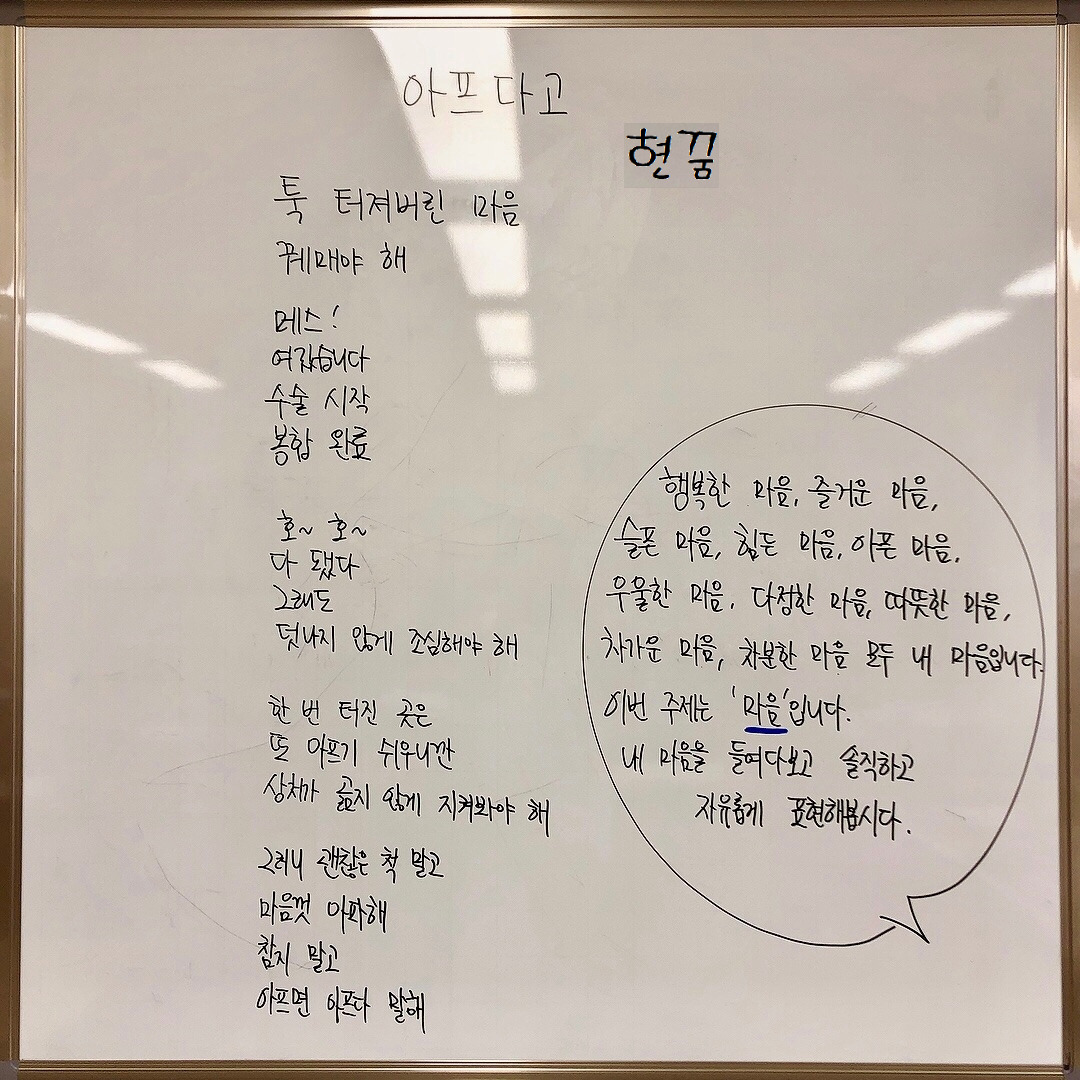 아프다고
현꿈
툭 터져버린 마음
꿰매야 해
메스!
여깄습니다
수술 시작
봉합 완료
호~ 호~
다 됐다
그래도
덧나지 않게 조심해야 해
한 번 터진 곳은
또 아프기 쉬우니깐
상처가 곪지 않게 지켜봐야 해
그러니 괜찮은 척 말고
마음껏 아파해
참지 말고
아프면 아프다 말해
행복한 마음, 즐거운 마음,
슬픈 마음, 힘든 마음, 아픈 마음,
우울한 마음, 다정한 마음, 따뜻한 마음,
차가운 마음, 차분한 마음 모두 내 마음입니다.
이번 주제는 '마음'입니다.
내 마음을 들여다보고 솔직하고
자유롭게 표현해봅시다.